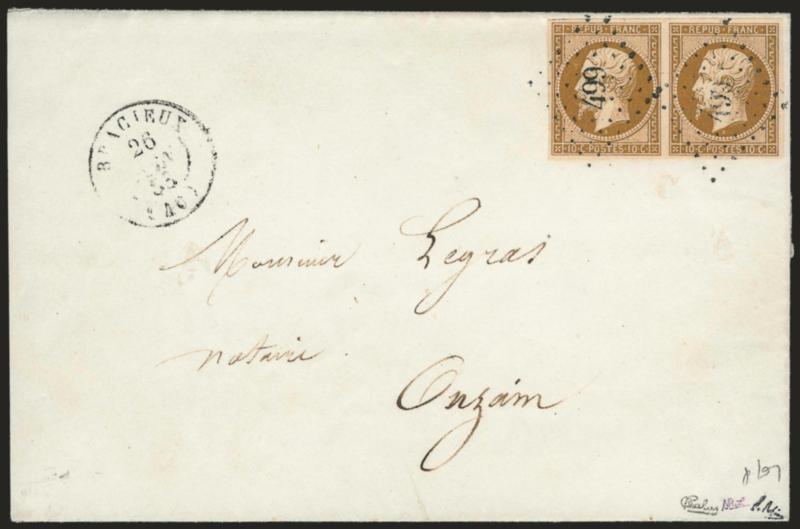 REPUB·FRANC·
REPUB·FRANC·
499
499
10·C·POSTES·10·C
10·C·POSTES·10·C
BRACIEUX
26
55
(40)
Monsieur Legras
notaire
Onzain